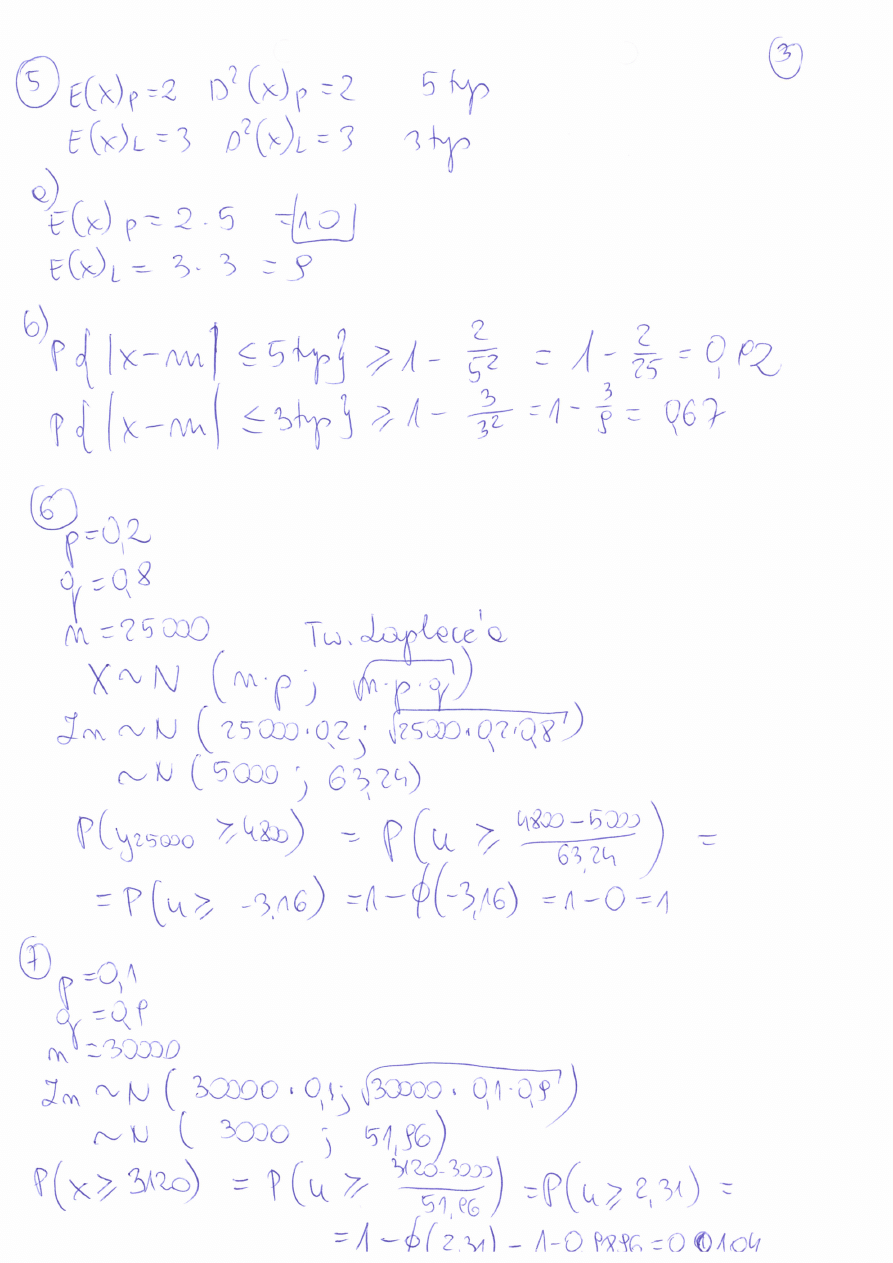 ③
⑤ E(x)p = 2 D²(x)p = 2 5 typ
E(x)L = 3 D²(x)L = 3 3 typ
a)
E(x)p = 2 · 5 = 10
E(x)L = 3 · 3 = 9
b)
P{|x-m| ≤ 5 typ} ≥ 1 - 2/5² = 1 - 2/25 = 0,92
P{|x-m| ≤ 3 typ} ≥ 1 - 3/3² = 1 - 3/9 = 0,67
⑥
p = 0,2
q = 0,8
n = 25000 Tw. Laplace'a
X ~ N (n·p ; √n·p·q)
Zn ~ N (25000·0,2 ; √25000·0,2·0,8)
~ N (5000 ; 63,24)
P(y25000 ≥ 4800) = P(u ≥ (4800-5000)/63,24) =
= P(u ≥ -3,16) = 1 - ϕ(-3,16) = 1 - 0 = 1
⑦
p = 0,1
q = 0,9
n = 30000
Zn ~ N (30000 · 0,1 ; √30000 · 0,1·0,9)
~ N (3000 ; 51,96)
P(x ≥ 3120) = P(u ≥ (3120-3000)/51,96) = P(u ≥ 2,31) =
= 1 - ϕ(2,31) - 1 - 0,9896 = 0,0104